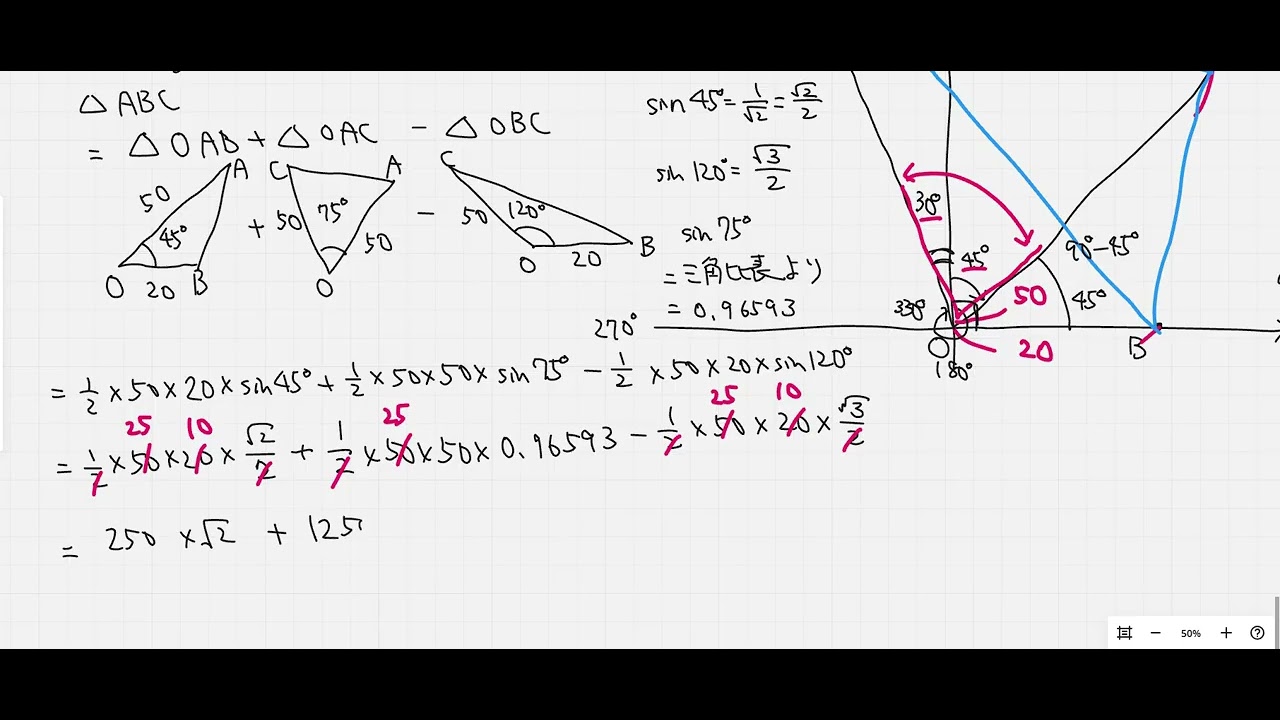 △ABC
= △OAB + △OAC - △OBC
50 45° O 20 B A
+
C A 50 75° 50 O
-
C 50 120° O 20 B
sin 45° = 1/√2 = √2/2
sin 120° = √3/2
sin 75°
= 三角比表より
= 0.96593
30°
45°
90°-45°
330°
50
45°
270°
O
20
B
180°
= 1/2 × 50 × 20 × sin 45° + 1/2 × 50 × 50 × sin 75° - 1/2 × 50 × 20 × sin 120°
25 10 25 25 10
= 1/2 × 50 × 20 × √2/2 + 1/2 × 50 × 50 × 0.96593 - 1/2 × 50 × 20 × √3/2
= 250 × √2 + 125
50%